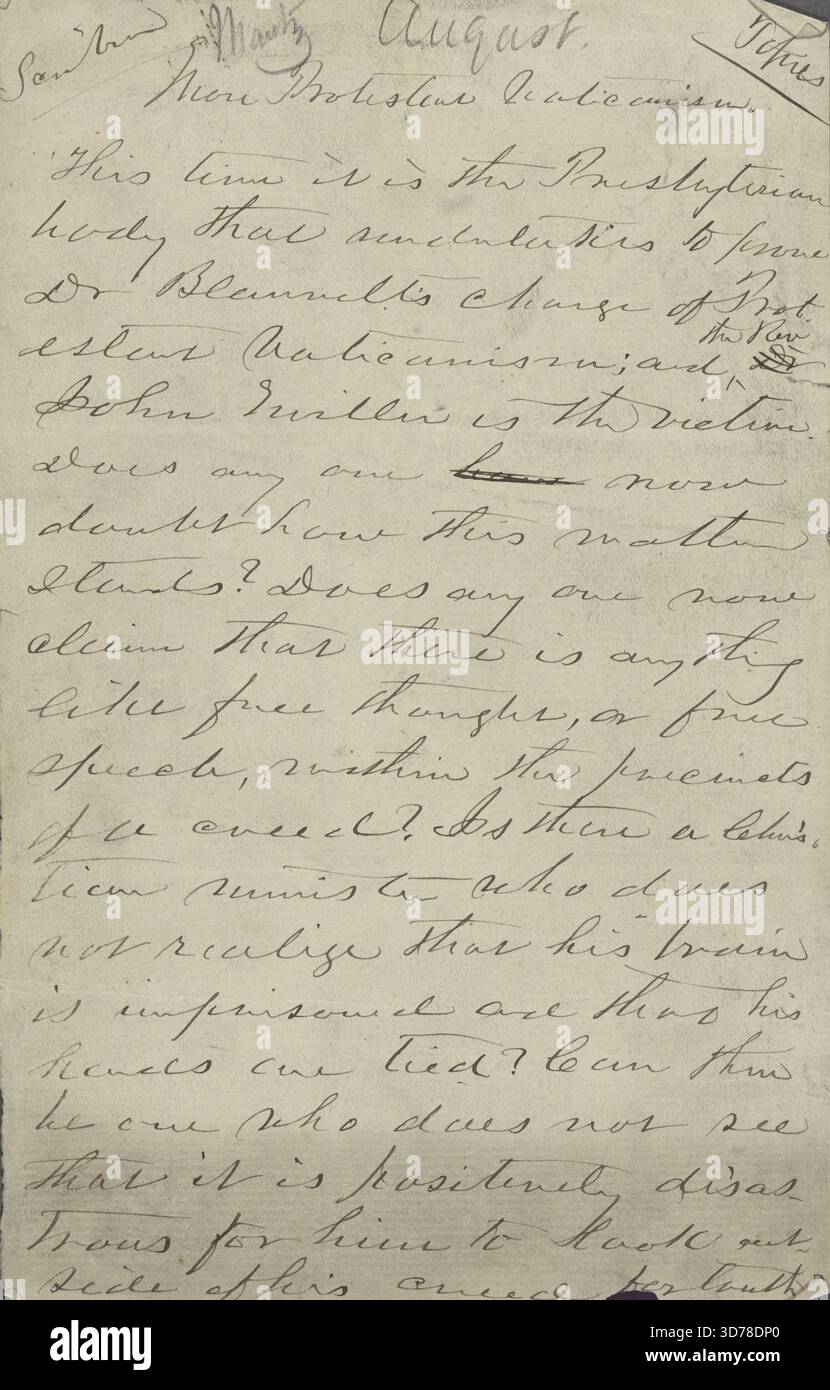 August.
Topics
More Protestant Vaticanism.
This time it is the Presbyterian
body that undertakes to prove
Dr Blauvelt's charge of Prot-
estant Vaticanism; and, the Rev
John Miller is the victim.
Does any one now
doubt how this matter
stands? Does any one now
claim that there is anything
like free thought, or free
speech, within the precincts
of a creed? Is there a Chris-
tian minister who does
not realize that his brain
is imprisoned and that his
hands are tied? Can there
be one who does not see
that it is positively disas-
trous for him to look out-
side of his creed for truth?
alamy
Image ID: 3D78DP0
www.alamy.com